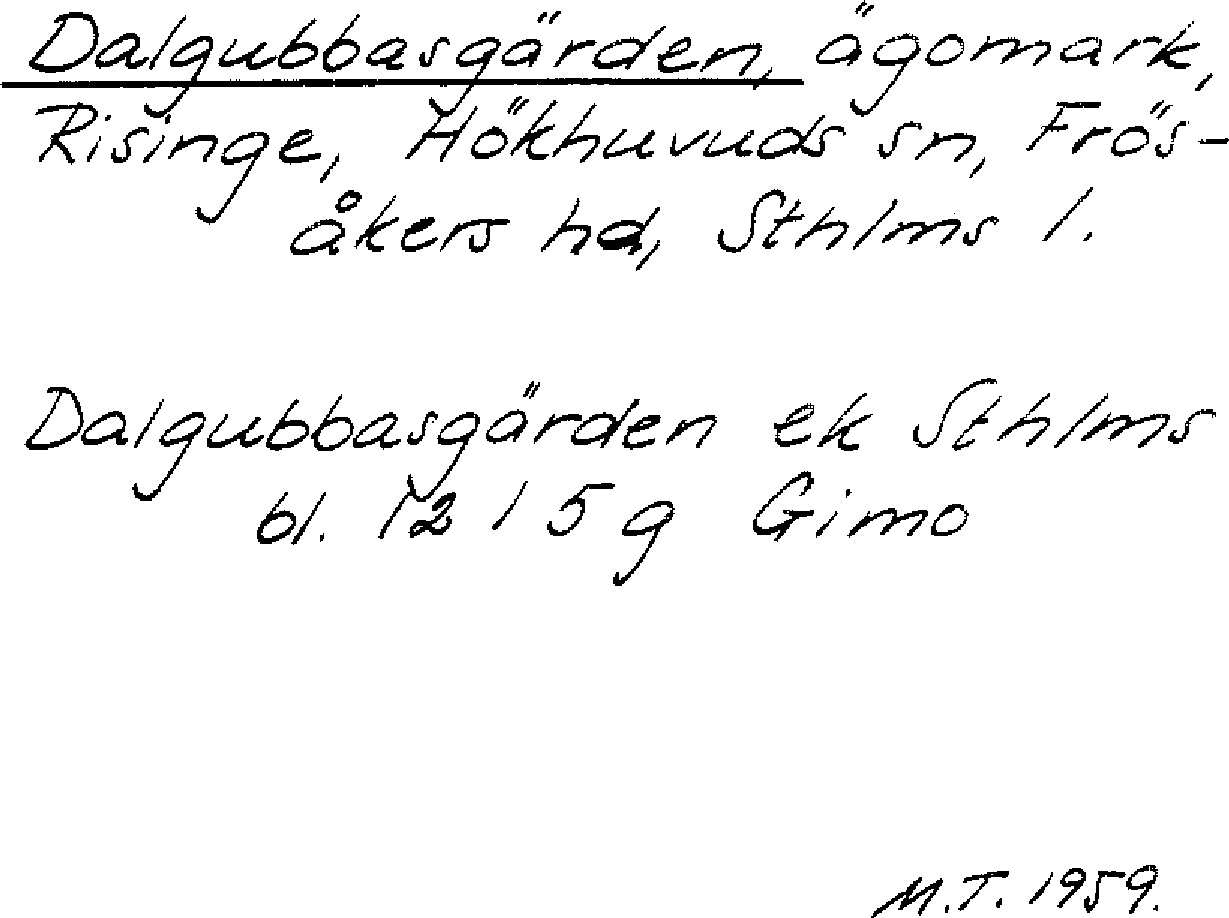 Dalgubbasgärden, ägomark,
Risinge, Hökhuvuds sn, Frös-
åkers hd, Sthlms l.
Dalgubbasgärden ek Sthlms
bl. 12 I 5 g Gimo
M.T. 1959.